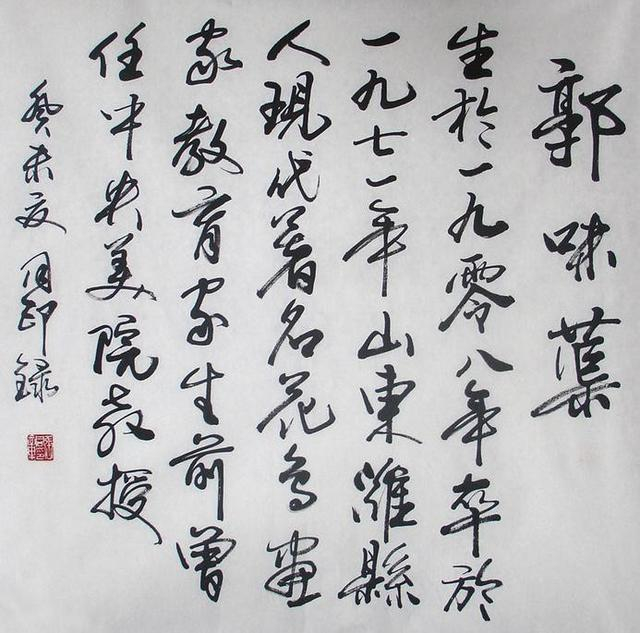 郭味蕖
生於一九零八年卒於
一九七一年山東濰縣
人現代著名花鳥畫
家教育家生前曾
任中央美院教授
癸未夏月印錄